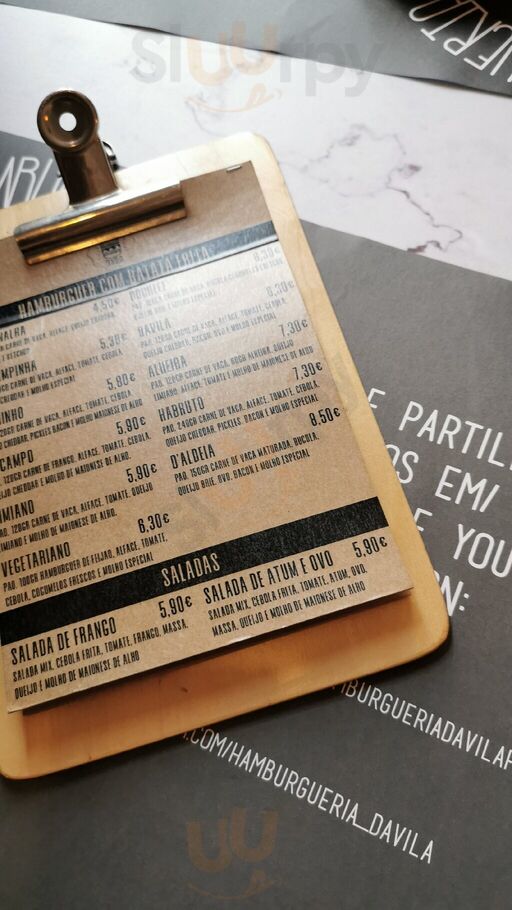 Sluurpy
HAMBURGUER COM BATATA FRITA
4,50€
CARNE DE VACA, ALFACE, QUEIJO CHEDDAR,
5,30€
CARNE DE VACA, ALFACE, TOMATE, CEBOLA,
CHEDDAR E MOLHO ESPECIAL
5,80€
CARNE DE VACA, ALFACE, TOMATE, CEBOLA,
CHEDDAR, PICKLES, BACON E MOLHO MAIONESE DE ALHO
CAMPO 5,90€
120GR CARNE DE FRANGO, ALFACE, TOMATE, CEBOLA,
CHEDDAR E MOLHO DE MAIONESE DE ALHO.
5,90€
PAO, 120GR CARNE DE VACA, ALFACE, TOMATE, QUEIJO
E MOLHO DE MAIONESE DE ALHO.
VEGETARIANO 6,30€
PAO, 100GR HAMBURGUER DE FEIJAO, ALFACE, TOMATE,
CEBOLA, COGUMELOS FRESCOS E MOLHO ESPECIAL
6,30€
DAVILA 6,30€
PAO, 120GR CARNE DE VACA, ALFACE, TOMATE, CEBOLA,
QUEIJO CHEDDAR, BACON, OVO E MOLHO ESPECIAL
ALHEIRA 7,30€
PAO, 120GR CARNE DE VACA, 60GR ALHEIRA, QUEIJO
ALFACE, TOMATE E MOLHO DE MAIONESE DE ALHO
7,30€
PAO, 240GR CARNE DE VACA, ALFACE, TOMATE, CEBOLA,
QUEIJO CHEDDAR, PICKLES, BACON E MOLHO ESPECIAL
D'ALDEIA 8,50€
PAO, 150GR CARNE DE VACA MATURADA, RUCULA,
QUEIJO BRIE, OVO, BACON E MOLHO ESPECIAL
SALADAS
SALADA DE FRANGO 5,90€
SALADA MIX, CEBOLA FRITA, TOMATE, FRANGO, MASSA,
QUEIJO E MOLHO DE MAIONESE DE ALHO
SALADA DE ATUM E OVO 5,90€
SALADA MIX, CEBOLA FRITA, TOMATE, ATUM, OVO,
MASSA, QUEIJO E MOLHO DE MAIONESE DE ALHO
E PARTIL
OS EM/
E YOU
N:
MBURGUERIADAVILAP
.COM/HAMBURGUERIA_DAVILA